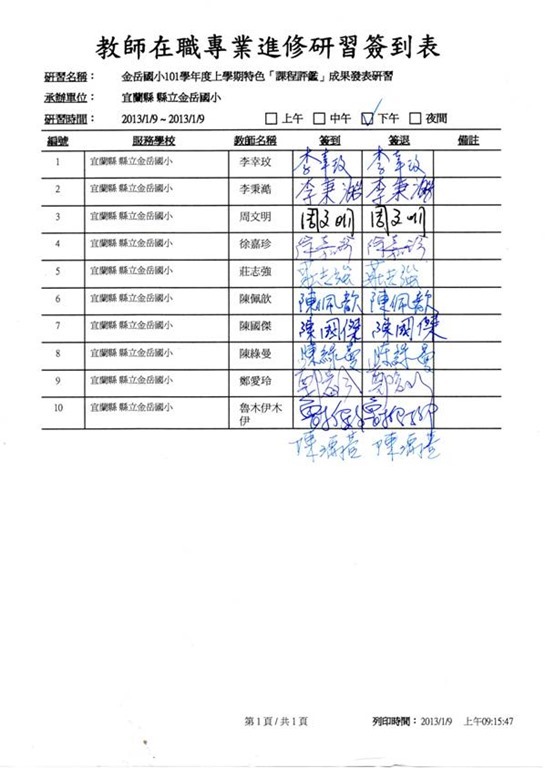 教師在職專業進修研習簽到表
研習名稱： 金岳國小101學年度上學期特色「課程評鑑」成果發表研習
承辦單位： 宜蘭縣 縣立金岳國小
研習時間： 2013/1/9 ~ 2013/1/9 □ 上午 □ 中午 ☑ 下午 □ 夜間
編號 服務學校 教師名稱 簽到 簽退 備註
1 宜蘭縣 縣立金岳國小 李幸玟 李幸玟 李幸玟
2 宜蘭縣 縣立金岳國小 李秉澔 李秉澔 李秉澔
3 宜蘭縣 縣立金岳國小 周文明 周文明 周文明
4 宜蘭縣 縣立金岳國小 徐嘉珍 徐嘉珍 徐嘉珍
5 宜蘭縣 縣立金岳國小 莊志強 莊志強 莊志強
6 宜蘭縣 縣立金岳國小 陳佩歆 陳佩歆 陳佩歆
7 宜蘭縣 縣立金岳國小 陳國傑 陳國傑 陳國傑
8 宜蘭縣 縣立金岳國小 陳綠曼 陳綠曼 陳綠曼
9 宜蘭縣 縣立金岳國小 鄭愛玲
10 宜蘭縣 縣立金岳國小 魯木伊木
伊
陳 陳
第 1 頁 / 共 1 頁 列印時間： 2013/1/9 上午09:15:47